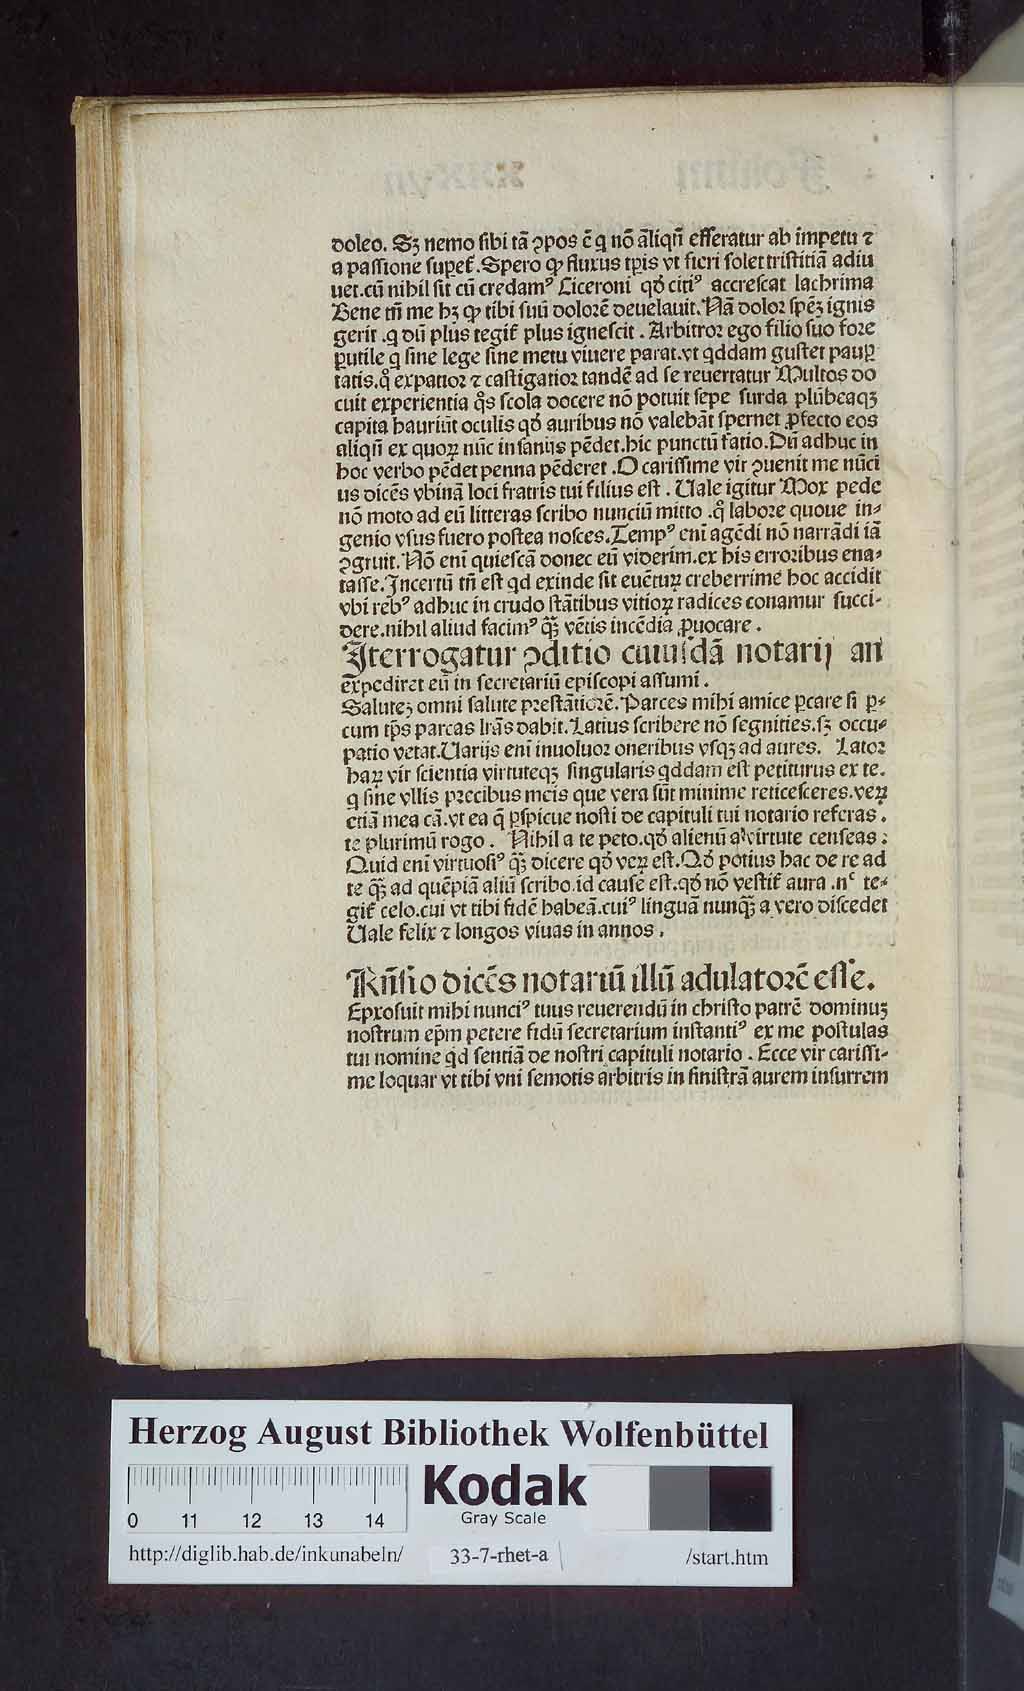 doleo. Sꝫ nemo sibi tā ꝯpos ē q̄ nō āliqn̄ efferatur ab impetu ⁊
a passione suꝑet̄. Spero qꝙ fluxus tꝑis vt fieri solet tristitiā adiu
uet. cū nihil sit cū credamꝰ Ciceroni qd̓ citiꝰ accrescat lachrima
Bene tn̄ me hꝫ ꝙ tibi suū dolorē deuelauit. Nā dolor spēꝫ ignis
gerit .q dū plus tegit̄ plus ignescit . Arbitror ego filio suo fore
ꝑutile q sine lege sine metu viuere parat. vt qddam gustet pauꝑ
tatis. qͦ expatior ⁊ castigatior tandē ad se reuertatur Multos do
cuit experientia qͦs scola docere nō potuit sepe surda plūbeaqꝫ
capita hauriūt oculis qd̓ auribus nō valebāt spernet ꝓfecto eos
aliqn̄ ex quoꝝ nūc insanijs pēdet. hic punctū fatio. Dū adhuc in
hoc verbo pēdet penna pēderet . O carissime vir ꝯuenit me nūci
us dicēs vbinā loci fratris tui filius est . Uale igitur Mox pede
nō moto ad eū litteras scribo nunciū mitto .qͦ labore quoue in⸗
genio vsus fuero postea nosces. Tempꝰ enī agēdi nō narrādi iā
ꝯgruit. Nō enī quiescā donec eū viderim. ex his erroribus ena⸗
tasse. Incertū tn̄ est qd exinde sit euētuꝝ creberrime hoc accidit
vbi rebꝰ adhuc in crudo stātibus vitioꝝ radices conamur succi⸗
dere. nihil aliud facimꝰ q̄ꝫ vētis incēdia ꝓuocare .
Iterrogatur ꝯditio cuiusdā notarij an
expediret eū in secretariū episcopi assumi .
Saluteꝫ omni salute prestātiorē. Parces mihi amice ꝑcare si ꝑ⸗
cum tp̄s parcas lrās dabit. Latius scribere nō segnities. sꝫ occu⸗
patio vetat. Uarijs enī inuoluor oneribus vsqꝫ ad aures. Lator
haꝝ vir scientia virtuteqꝫ singularis qddam est petiturus ex te.
q sine vllis precibus meis que vera sūt minime reticesceres. veꝝ
etiā mea cā. vt ea q̄ ꝑspicue nosti de capituli tui notario referas .
te plurimū rogo . Nihil a te peto. qd̓ alienū a virtute censeas :
Quid enī virtuosiꝰ q̄ꝫ dicere qd̓ veꝝ est. Qd̓ potius hac de re ad
te q̄ꝫ ad quēpiā aliū scribo. id cause est. qd̓ nō vestit̄ aura .nᶜ te⸗
git̄ celo. cui vt tibi fidē habeā. cuiꝰ linguā nunq̄ꝫ a vero discedet
Uale felix ⁊ longos viuas in annos .
Rn̄sio dicēs notariū illū adulatorē esse.
Eprosuit mihi nunciꝰ tuus reuerendū in christo patrē dominuꝫ
nostrum ep̄m petere fidū secretarium instantiꝰ ex me postulas
tui nomine qd sentiā de nostri capituli notario . Ecce vir carissi⸗
me loquar vt tibi vni semotis arbitris in sinistrā aurem insurrem
Herzog August Bibliothek Wolfenbüttel
Kodak
Gray Scale
0 11 12 13 14
http://diglib.hab.de/inkunabeln/ 33-7-rhet-a /start.htm